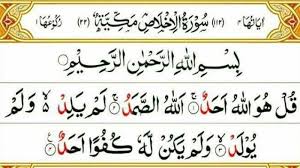 اٰیَاتُهَا ۴ (۱۱۲) سُوْرَةُ الْاِخْلَاصِ مَكِّیَّةٌ (۲۲) رُكُوْعُهَا ۱
بِسْمِ اللّٰهِ الرَّحْمٰنِ الرَّحِیْمِ
قُلْ هُوَ اللّٰهُ اَحَدٌۚ۝۱ اَللّٰهُ الصَّمَدُۚ۝۲ لَمْ یَلِدْ۬ۙ وَ لَمْ
یُوْلَدْۙ۝۳ وَ لَمْ یَكُنْ لَّهٗ كُفُوًا اَحَدٌ۠۝۴